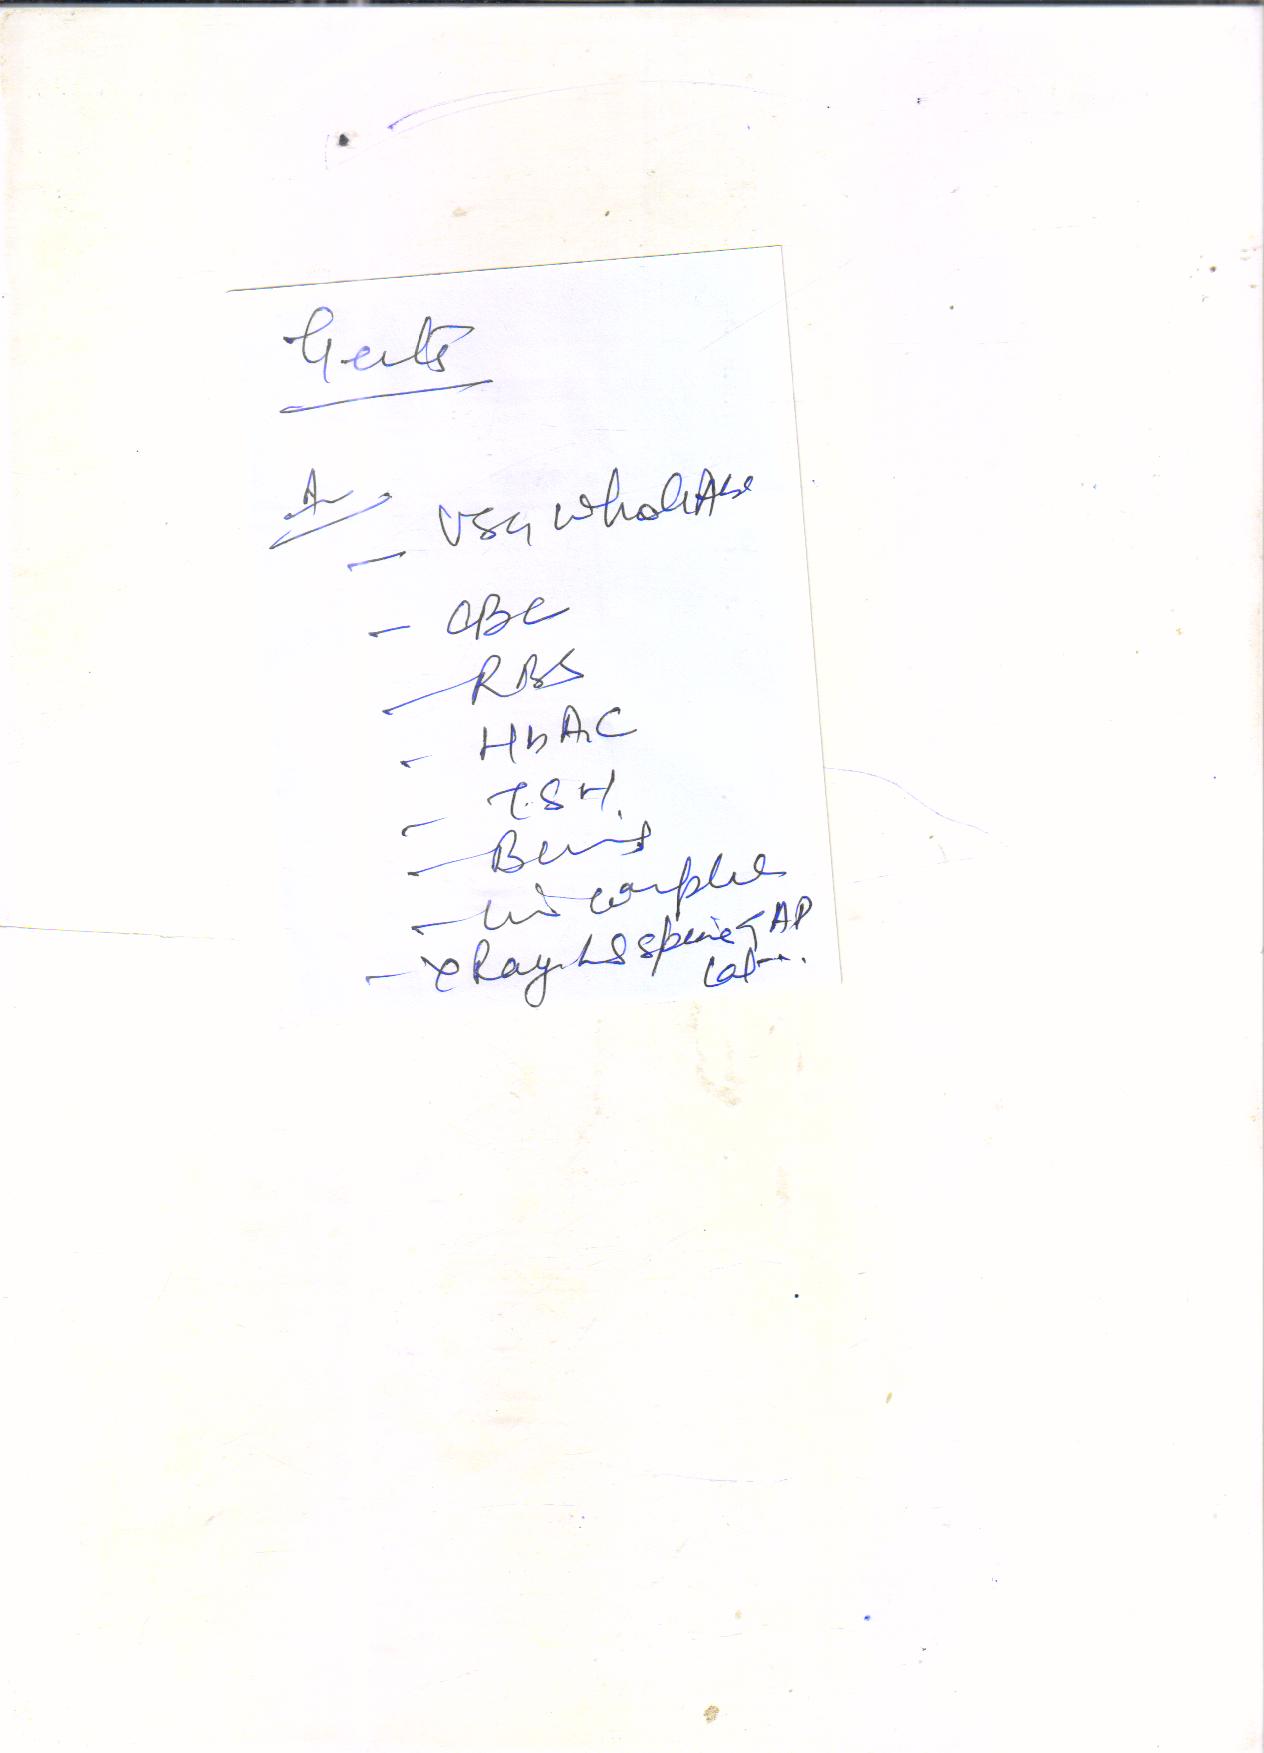 Gents
A
- USG Whole Abd
- CBC
- RBS
- HbA1C
- TSH.
- B
- complete
- X Ray LS spine AP
Lat